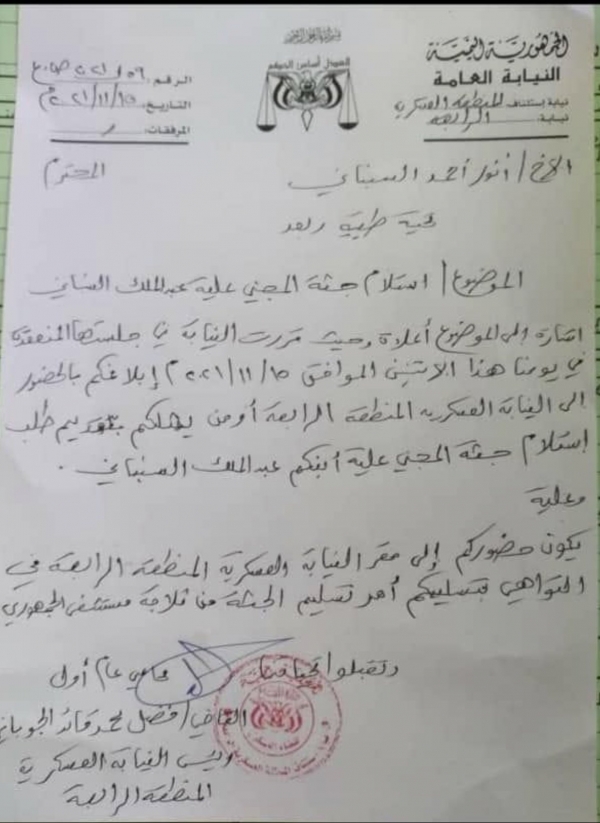 بسم الله الرحمن الرحيم
الجمهورية اليمنية
النيابة العامة
نيابة إستئناف: المنطقة العسكرية
نيابة: الرابعة
العدل أساس الحكم
الرقم:
التاريخ: ٢٠٢١/١١/١٥م
المرفقات:
الأخ / أنور أحمد السنباني المحترم
تحية طيبة وبعد
الموضوع / استلام جثة المجني علية عبدالملك السنباني
اشارة إلى الموضوع أعلاة وحيث قررت النيابة في جلستها المنعقدة
في يومنا هذا الاثنين الموافق ٢٠٢١/١١/١٥م إبلاغكم بالحضور
الى النيابة العسكرية المنطقة الرابعة أو من يمثلكم بتقديم طلب
إستلام جثة المجني علية أبنكم عبدالملك السنباني .
وعلية
يكون حضوركم إلى مقر النيابة العسكرية المنطقة الرابعة في
التواهي لتسليمكم أمر تسليم الجثة من ثلاجة مستشفى الجمهوري
وتقبلوا تحياتنا محامي عام أول
القاضي / فضل محمد قائد الجوباني
رئيس النيابة العسكرية
المنطقة الرابعة